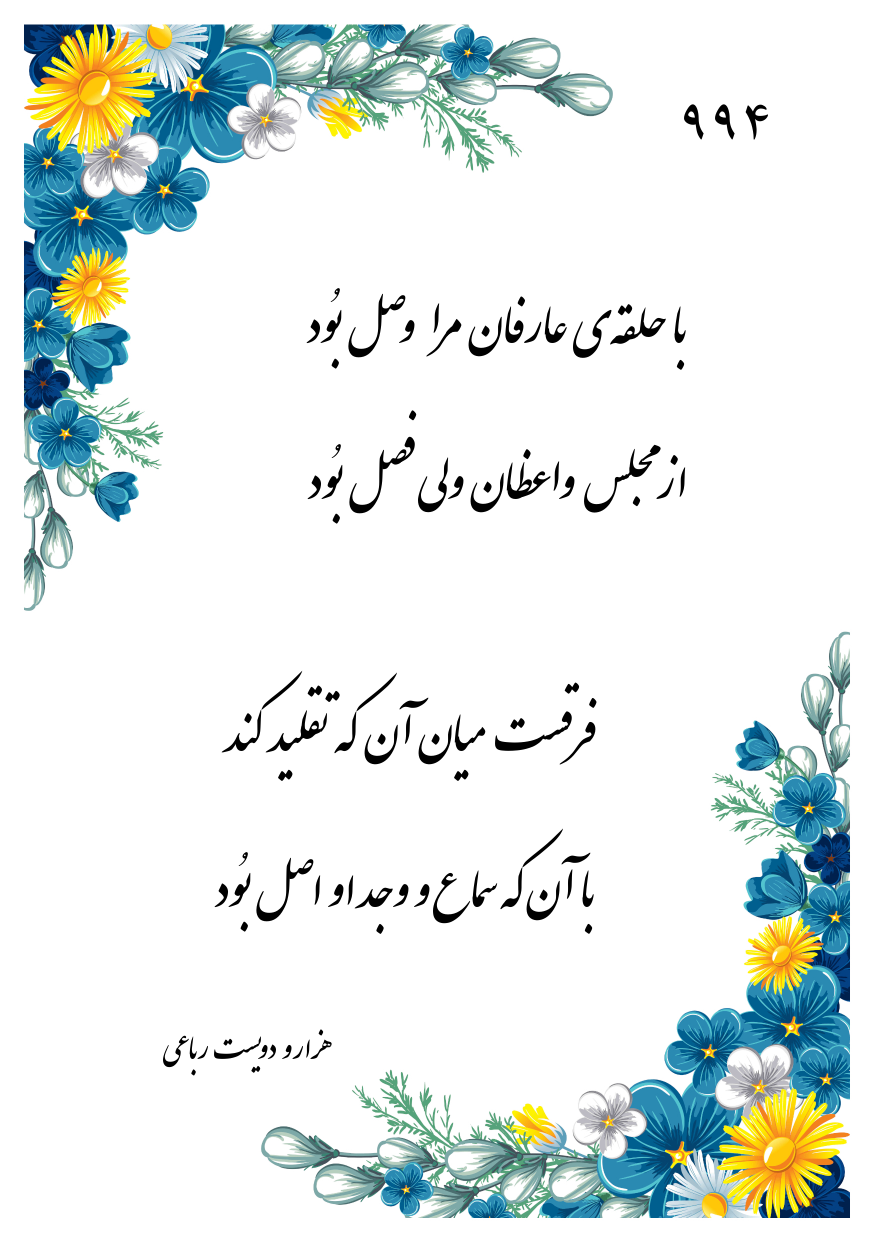 ۹۹۴
با حلقه‌ی عارفان مرا وصل بُود
از مجلس واعظان ولی فصل بُود
فرقست میان آن که تقلید کند
با آن که سماع و وجد او اصل بُود
هزار و دویست رباعی